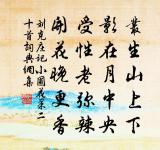 叢生山上下
影在月中央
受性老弥辣
開花晚更香
刘克庄記小圃花果二
十首詞典網集